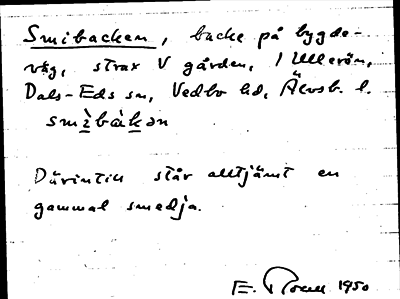 Smibacken, backe på bygde-
väg, strax V gården, 1 Ullerön,
Dals-Eds sn, Vedbo hd, Älvsb. l.
smìbàkən
Därintill står alltjämt en
gammal smedja.
E. 1950